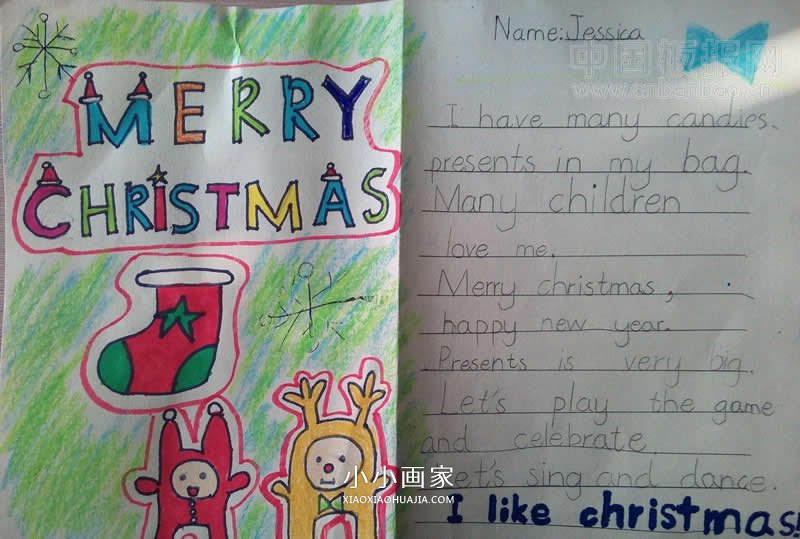 MERRY
CHRISTMAS
Name: Jessica
中国板报网
www.cnbanbao.cn
I have many candies、
presents in my bag.
Many children
love me.
Merry christmas,
happy new year.
Presents is very big.
Let's play the game
and celebrate.
Let's sing and dance.
I like christmas!
小小画家
XIAOXIAOHUAJIA.COM